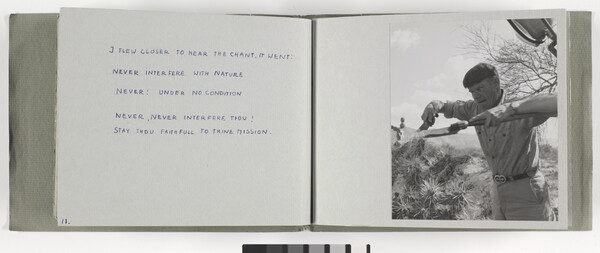 I FLEW CLOSER TO HEAR THE CHANT, IT WENT:
NEVER INTERFERE WITH NATURE
NEVER! UNDER NO CONDITION
NEVER, NEVER INTERFERE THOU!
STAY THOU FAITHFULL TO THINE MISSION.
11.